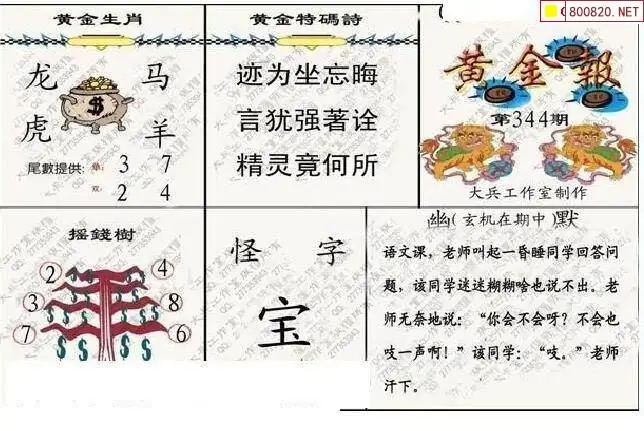 800820.NET
黄金生肖
龙 马
虎 羊
$
尾數提供: 單: 3 7
双: 2 4
黄金特碼詩
迹为坐忘晦
言犹强著诠
精灵竟何所
黄金報
第344期
大兵工作室制作
摇錢樹
2 4
3 8
7 6
$ $ $ $ $ $
怪 字
宝
幽(玄机在期中)默
语文课，老师叫起一昏睡同学回答问
题，该同学迷迷糊糊啥也说不出。老
师无奈地说：“你会不会呀？不会也
吱一声啊！”该同学：“吱。”老师
汗下。